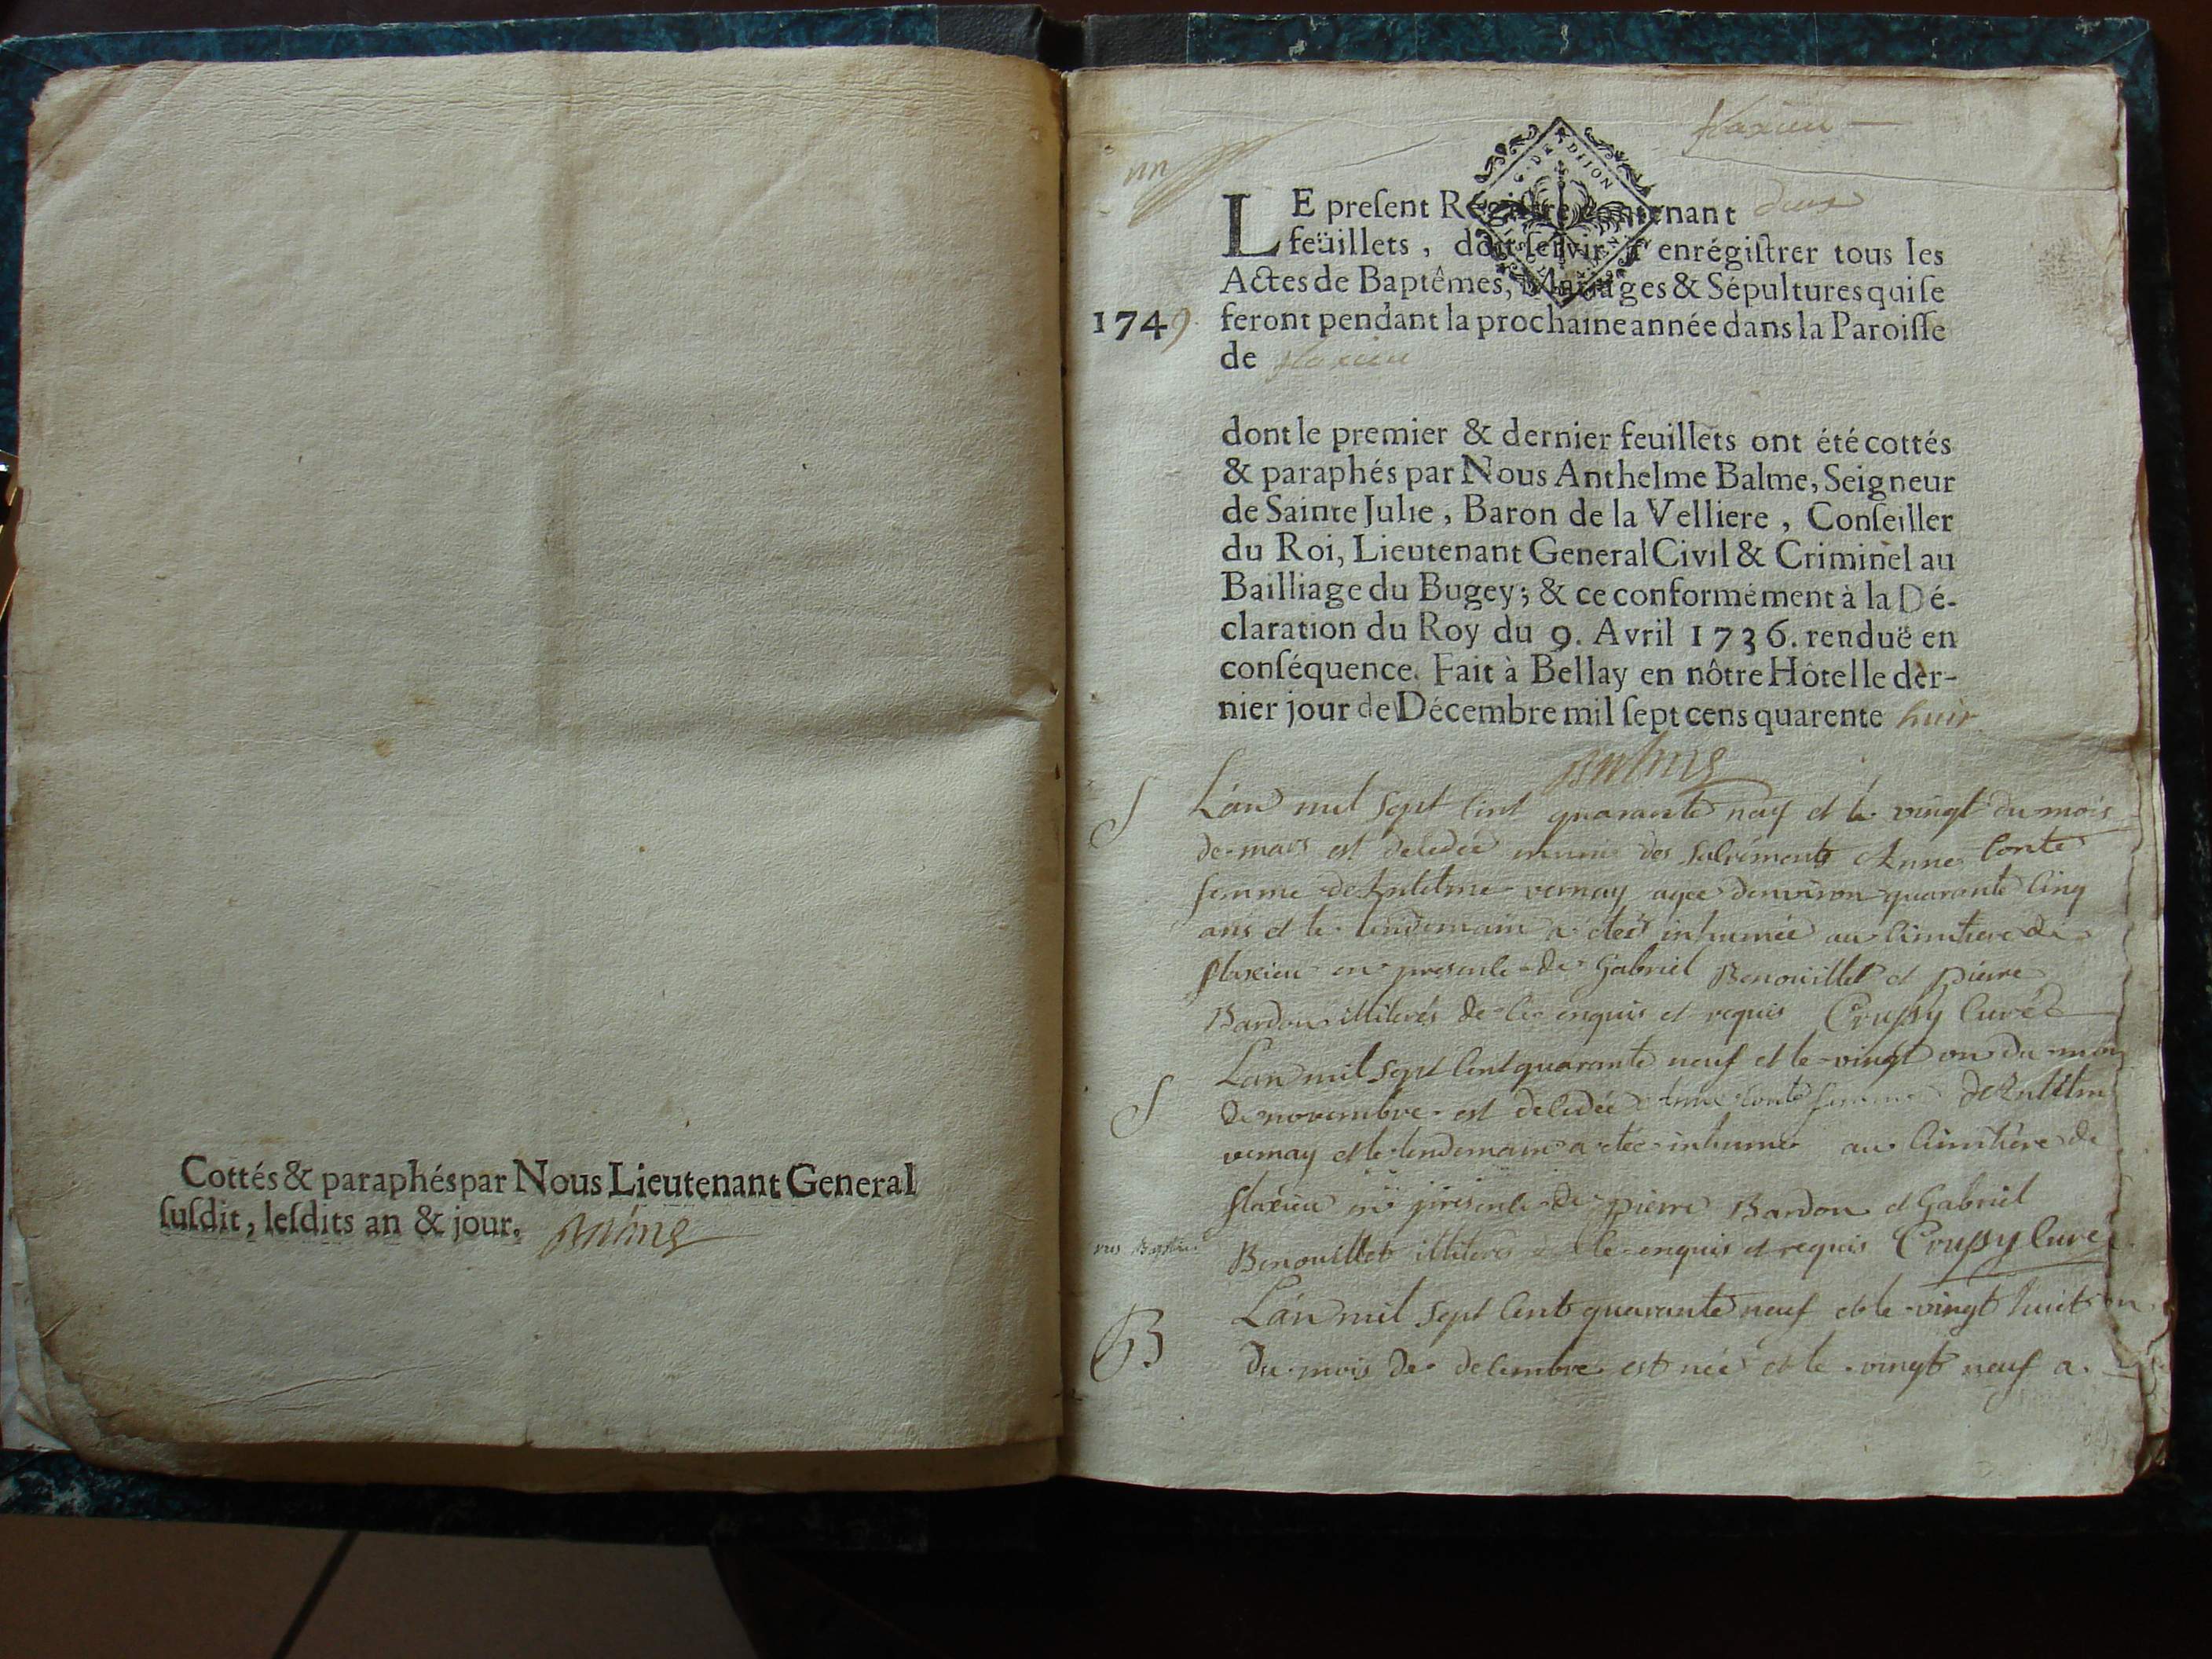 Cottés & paraphés par Nous Lieutenant General
ſuſdit, leſdits an & jour. Balme
flaxieu
un
G. DE DIION
LE preſent Régiſtre contenant deux
feüillets, doit ſervir à enrégiſtrer tous les
Actes de Baptêmes, Mariages & Sépultures qui ſe
1749 feront pendant la prochaine année dans la Paroiſſe
de flaxieu
dont le premier & dernier feuillets ont été cottés
& paraphés par Nous Anthelme Balme, Seigneur
de Sainte Julie, Baron de la Velliere, Conſeiller
du Roi, Lieutenant General Civil & Criminel au
Bailliage du Bugey; & ce conformément à la Dé-
claration du Roy du 9. Avril 1736. renduë en
conſéquence. Fait à Bellay en nôtre Hôtel le der-
nier jour de Décembre mil ſept cens quarente huit
Balme
S L'an mil sept cent quarante neuf et le vingt du mois
de mars est decedée munie des sacréments Anne Conte
femme de Antelme vernay agée denviron quarante cinq
ans et le lendemain a etée inhumée au cimitiere de
flaxieu en presence de Gabriel Benouillet et pierre
Bardon illiterés de ce enquis et requis Crussy Curé
S L'an mil sept cent quarante neuf et le vingt un du mois
de novembre est decedée Anne Conte femme de Antelme
vernay et le lendemain a etée inhumée au cimitière de
flaxieu en presence de pierre Bardon et Gabriel
Benouillet illiteres de ce enquis et requis Crussy Curé
B L'an mil sept cent quarante neuf et le vingt huit
du mois de decembre est née et le vingt neuf a